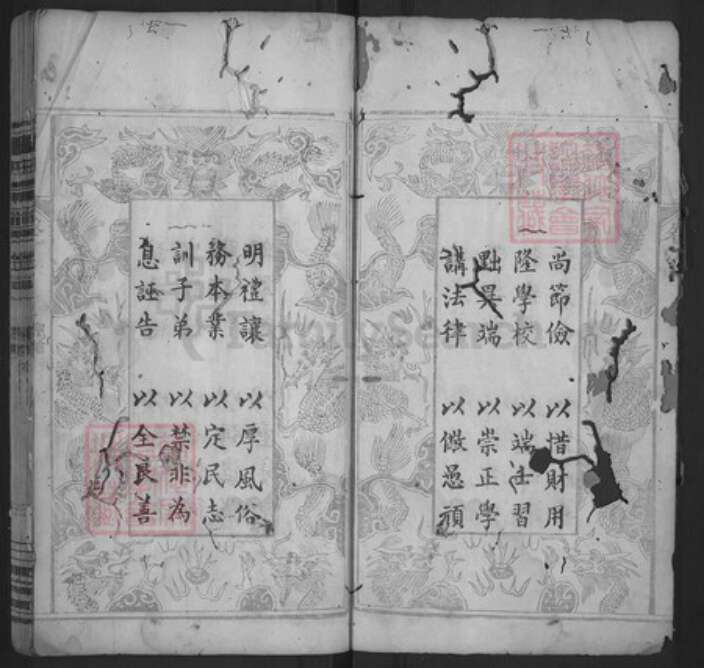 尚節儉 以惜財用
隆學校 以端士習
黜異端 以崇正學
講法律 以儆愚頑
明禮讓 以厚風俗
務本業 以定民志
訓子弟 以禁非為
息誣告 以全良善